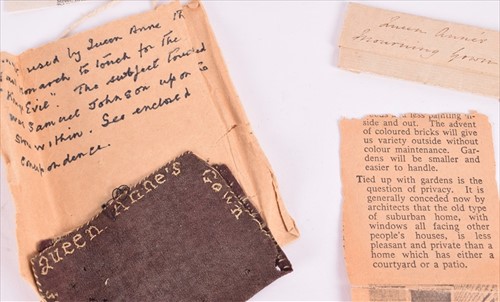 used by Queen Anne
monarch to touch for the
King's Evil". The subject touched
was Samuel Johnson upon is
within. See enclosed
correspondence.
Queen Anne's
Gown
Queen Anne's
Mourning Gown
and a less painting in-
side and out. The advent
of coloured bricks will give
us variety outside without
colour maintenance. Gar-
dens will be smaller and
easier to handle.
Tied up with gardens is the
question of privacy. It is
generally conceded now by
architects that the old type
of suburban home, with
windows all facing other
people's houses, is less
pleasant and private than a
home which has either a
courtyard or a patio.